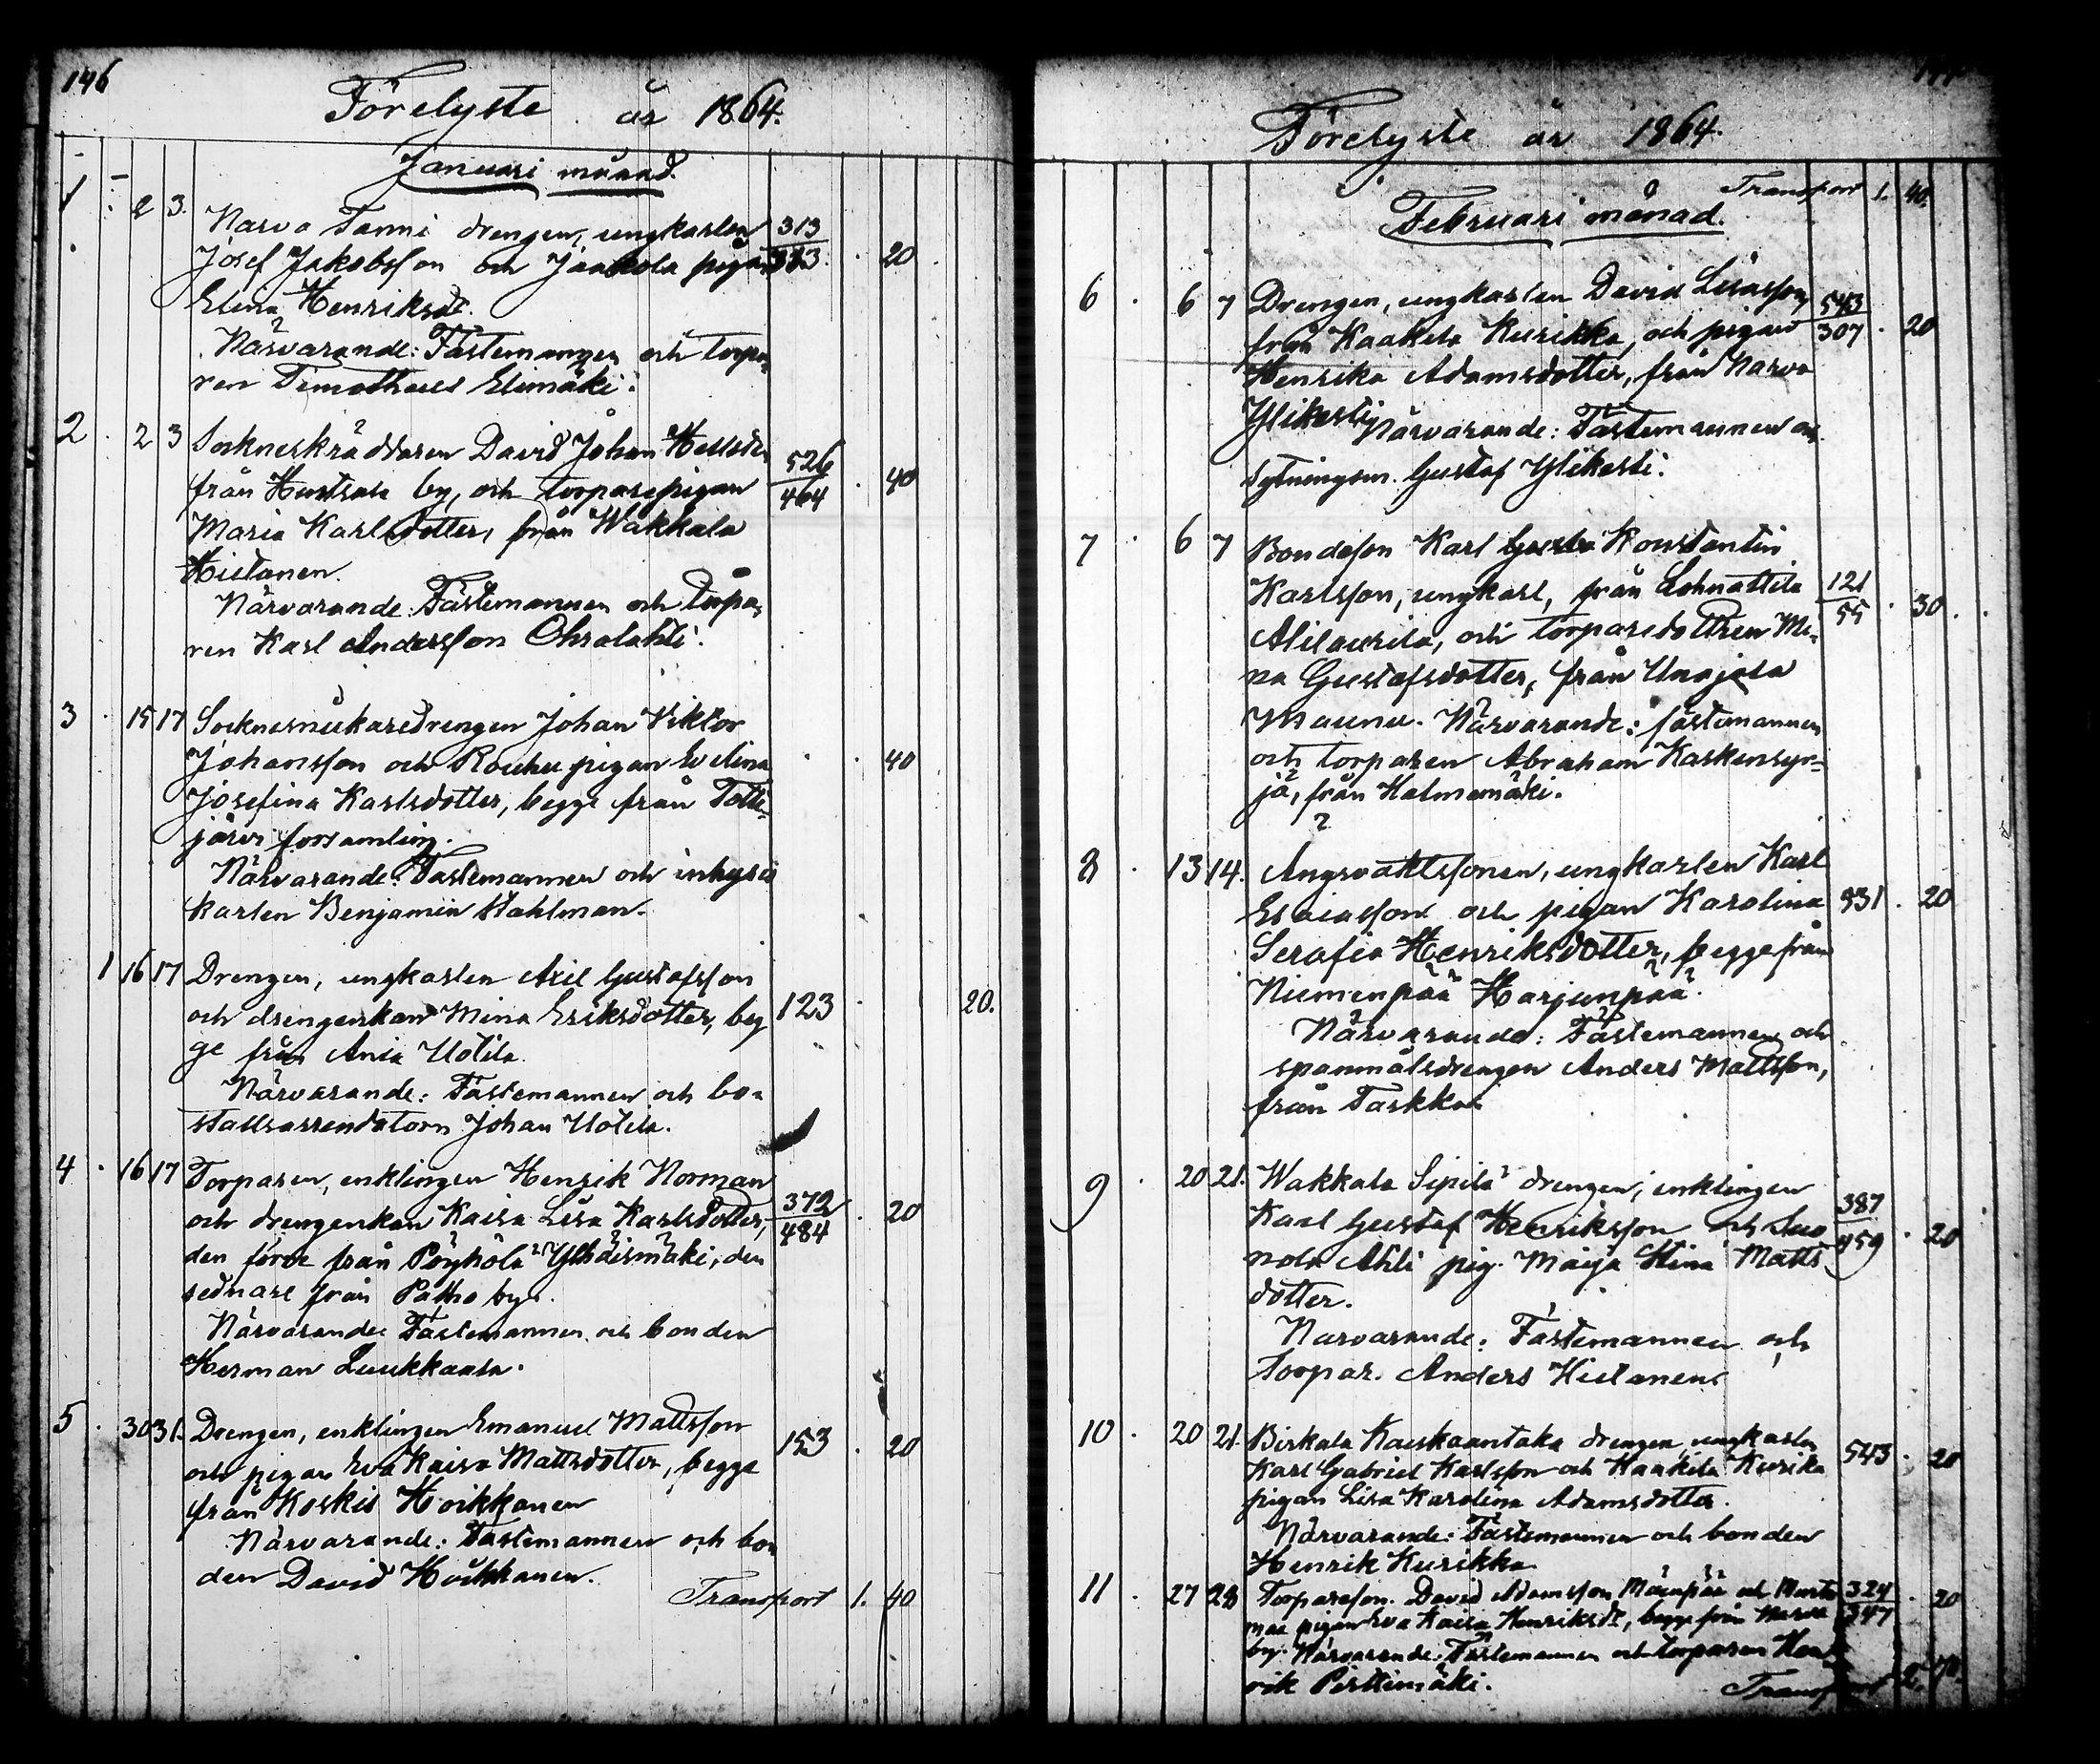 146
Förelyste år 1864.
Januari månad.
1 2 3. Narva Tanni drengen, ungkarlen 313
Josef Jakobsson och Jaakola pigan 333. 20
Elina Henriksdr.
Närvarande: Fästemannen och torpa-
ren Timotheus Elimäki.
2 2 3 Sockneskräddaren David Johan Hellsten 526
från Hustrala by, och torparepigan 464 40
Maria Karlsdotter, från Wakkala
Hietanen.
Närvarande: Fästemannen och Torpa-
ren Karl Andersson Ohralahti.
3 15 17 Socknesnickaredrengen Johan Viktor
Johansson och Rouhu pigan Evelina 40
Josefina Karlsdotter, begge från Totti-
järvi församling.
Närvarande: Fästemannen och inhyses
karlen Benjamin Stahlman.
1 16 17 Drengen, ungkarlen Axel Gustafsson
och drengenkan Mina Eriksdotter, beg 123 20.
ge från Ania Uotila.
Närvarande: Fästemannen och bo-
stallsarrendatorn Johan Uotila.
4 16 17 Torparen, enklingen Henrik Norman 372
och drengenkan Kaisa Lisa Karlsdotter, 484 20
den förre från Pöyhölä Yhdismäki, den
sednare från Patho by.
Närvarande Fästemannen och bonden
Herman Luukkaala.
5 30 31. Drengen, enklingen Emanuel Mattsson
och pigan Eva Kaisa Mattsdotter, begge 153 20
från Koskis Hoikkanen
Närvarande: Fästemannen och bon
den David Hoikkanen.
Transport 1. 40
Förelyste år 1864.
Transport 1. 40.
Februari månad.
6 6 7 Drengen, ungkarlen David Liinasson, 543
från Kaakila Kurikka, och pigan 307 20
Henrika Adamsdotter, från Narva
Ylikesti Närvarande: Fästemannen och
sytningsm. Gustaf Ylikesti.
7 6 7 Bondeson Karl Konstantin
Karlsson, ungkarl, från Lehnattila 121
Alilaurila, och torparedottren Mi- 55 30
na Gustafsdotter, från Unajala
Maunu. Närvarande: fästemannen
och torparen Abraham Kaskensyr-
jä, från Halmemäki.
8 13 14. Ängsvaktssonen, ungkarlen Karl
Esaiasson och pigan Karolina 331 20
Serafia Henriksdotter, begge från
Niemenpää Harjunpää.
Närvarande: Fästemannen och
spanmålsdrengen Anders Mattsson,
från Taskkas
9 20 21. Wakkala Sipilä drengen, enklingen 387
Karl Gustaf Henriksson och Suo 459 20
nola Ahti pig. Maija Stina Matts
dotter.
Närvarande: Fästemannen och
Torpar. Anders Hietanen
10 20 21. Birkala Kauskaantaka drengen ungkarlen
Karl Gabriel Karlsson och Kaakila Kurika 543 20
pigan Lisa Karolina Adamsdotter.
Närvarande: Fästemannen och bonden
Henrik Kurikka
11 27 28 Torpareson. David Adamsson Mäenpää och Musta 324 20
maa pigan Eva Kaisa Henriksdr, begge från Narva 347
by. Närvarande: Fästemannen och torparen Hen
rik Pirttimäki.
Transport 2. 70.